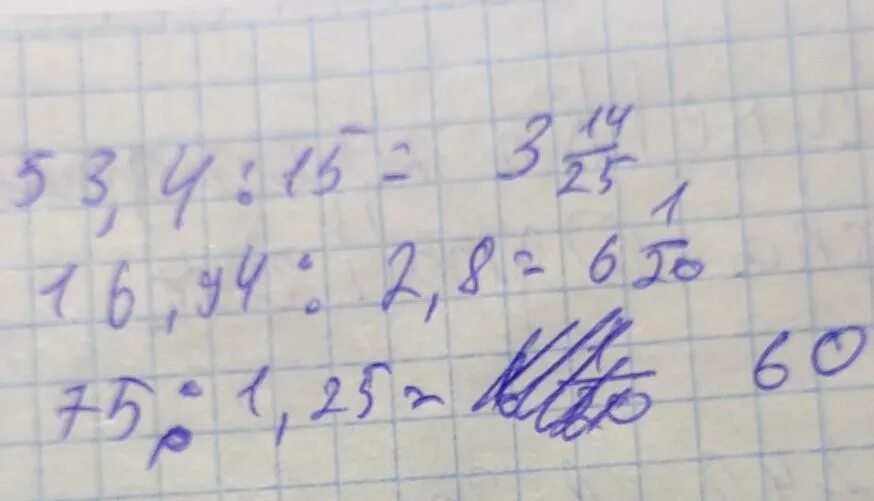 53,4 : 15 = 3 14/25
16,94 : 2,8 = 6 1/20
75 : 1,25 = 60